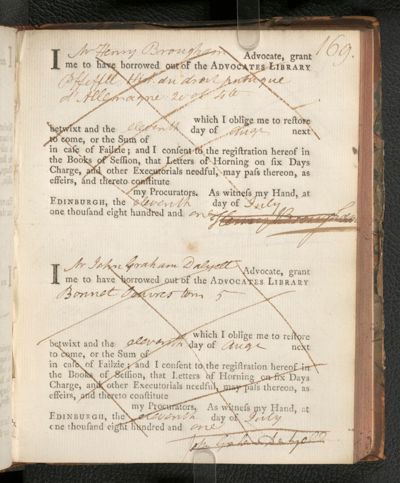 169.
I Mr Henry Brougham Advocate, grant
me to have borrowed out of the ADVOCATES LIBRARY
d'Allemagne 2
which I oblige me to restore
betwixt and the eleventh day of Augt next
to come, or the Sum of
in case of Failzie; and I consent to the registration hereof in
the Books of Session, that Letters of Horning on six Days
Charge, and other Executorials needful, may pass thereon, as
effeirs, and thereto constitute
my Procurators. As witness my Hand, at
EDINBURGH, the eleventh day of July
one thousand eight hundred and one
Henry Brougham
I Mr John Graham Dalyell Advocate, grant
me to have borrowed out of the ADVOCATES LIBRARY
Bonnet Oeuvres tom 5
which I oblige me to restore
betwixt and the eleventh day of Augt next
to come, or the Sum of
in case of Failzie; and I consent to the registration hereof in
the Books of Session, that Letters of Horning on six Days
Charge, and other Executorials needful, may pass thereon, as
effeirs, and thereto constitute
my Procurators. As witness my Hand, at
EDINBURGH, the eleventh day of July
one thousand eight hundred and one